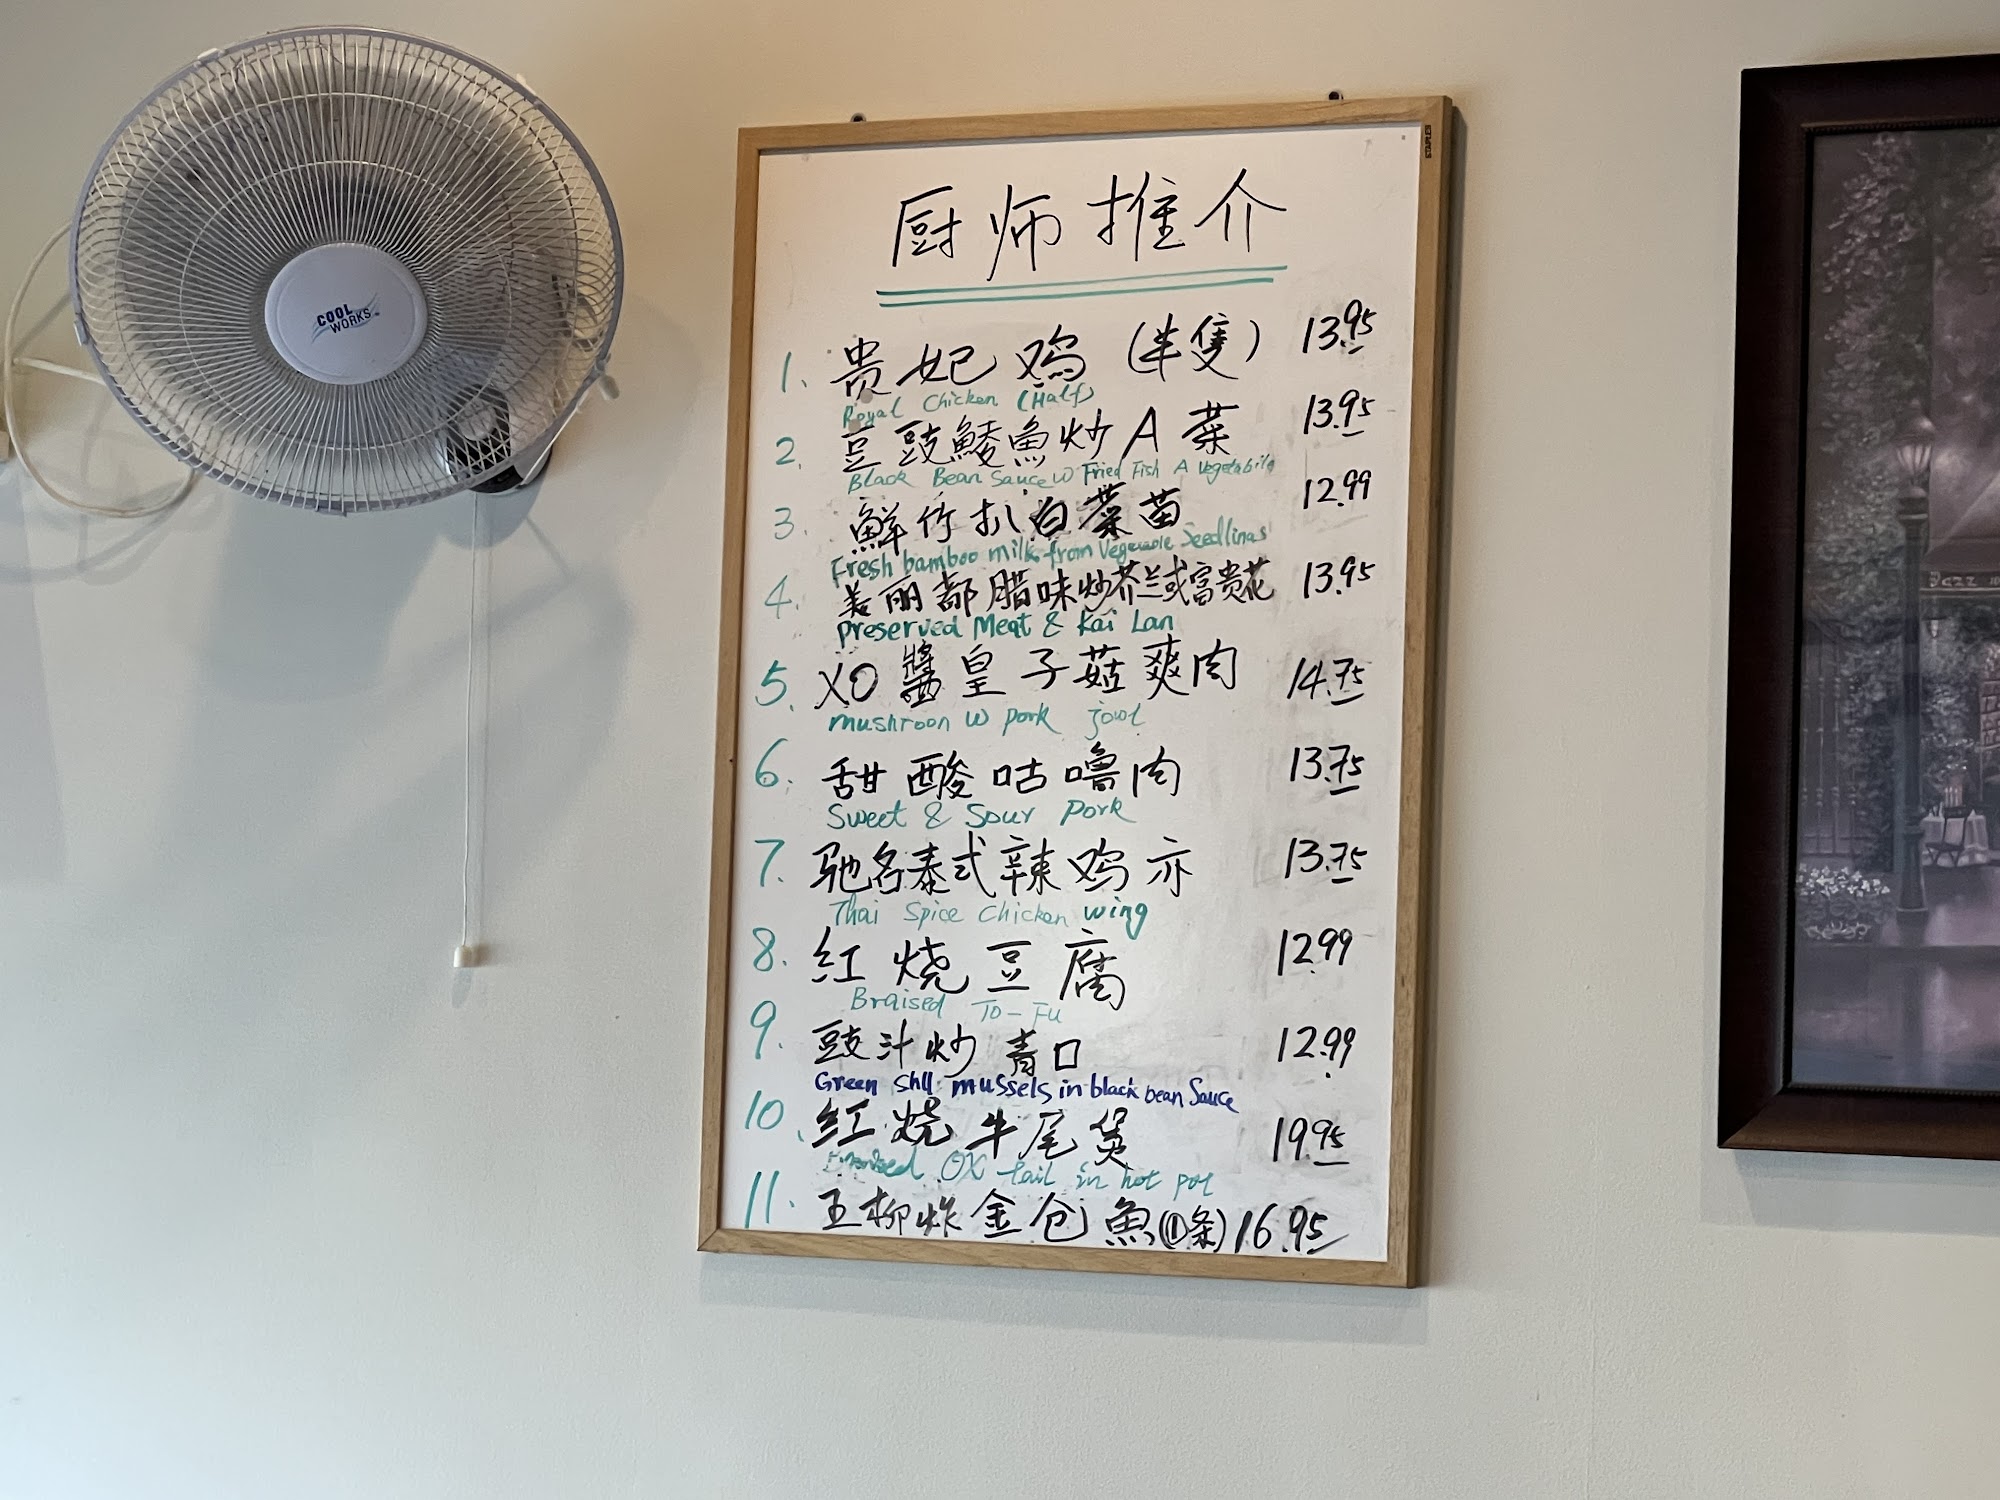 COOL
WORKS
STAPLES
厨师推介
1. 贵妃鸡 (半隻) 13.95
Royal Chicken (Half)
2. 豆豉鯪魚炒A菜 13.95
Black Bean Sauce w Fried Fish A Vegetabile
3. 鮮竹扒白菜苗 12.99
Fresh bamboo milk from Vegetable Seedlings
4. 美丽都腊味炒芥兰或富贵花 13.95
Preserved Meat & Kai Lan
5. XO醬皇子菇爽肉 14.75
mushroon w pork jowl
6. 甜酸咕嚕肉 13.75
Sweet & Sour Pork
7. 驰名泰式辣鸡亦 13.75
Thai Spice Chicken wing
8. 紅烧豆腐 12.99
Braised To-Fu
9. 豉汁炒青口 12.99
Green shll mussels in black bean Sauce
10. 紅烧牛尾煲 19.95
OX tail in hot pot
11. 五柳炸金仓魚(1条) 16.95
Jazz